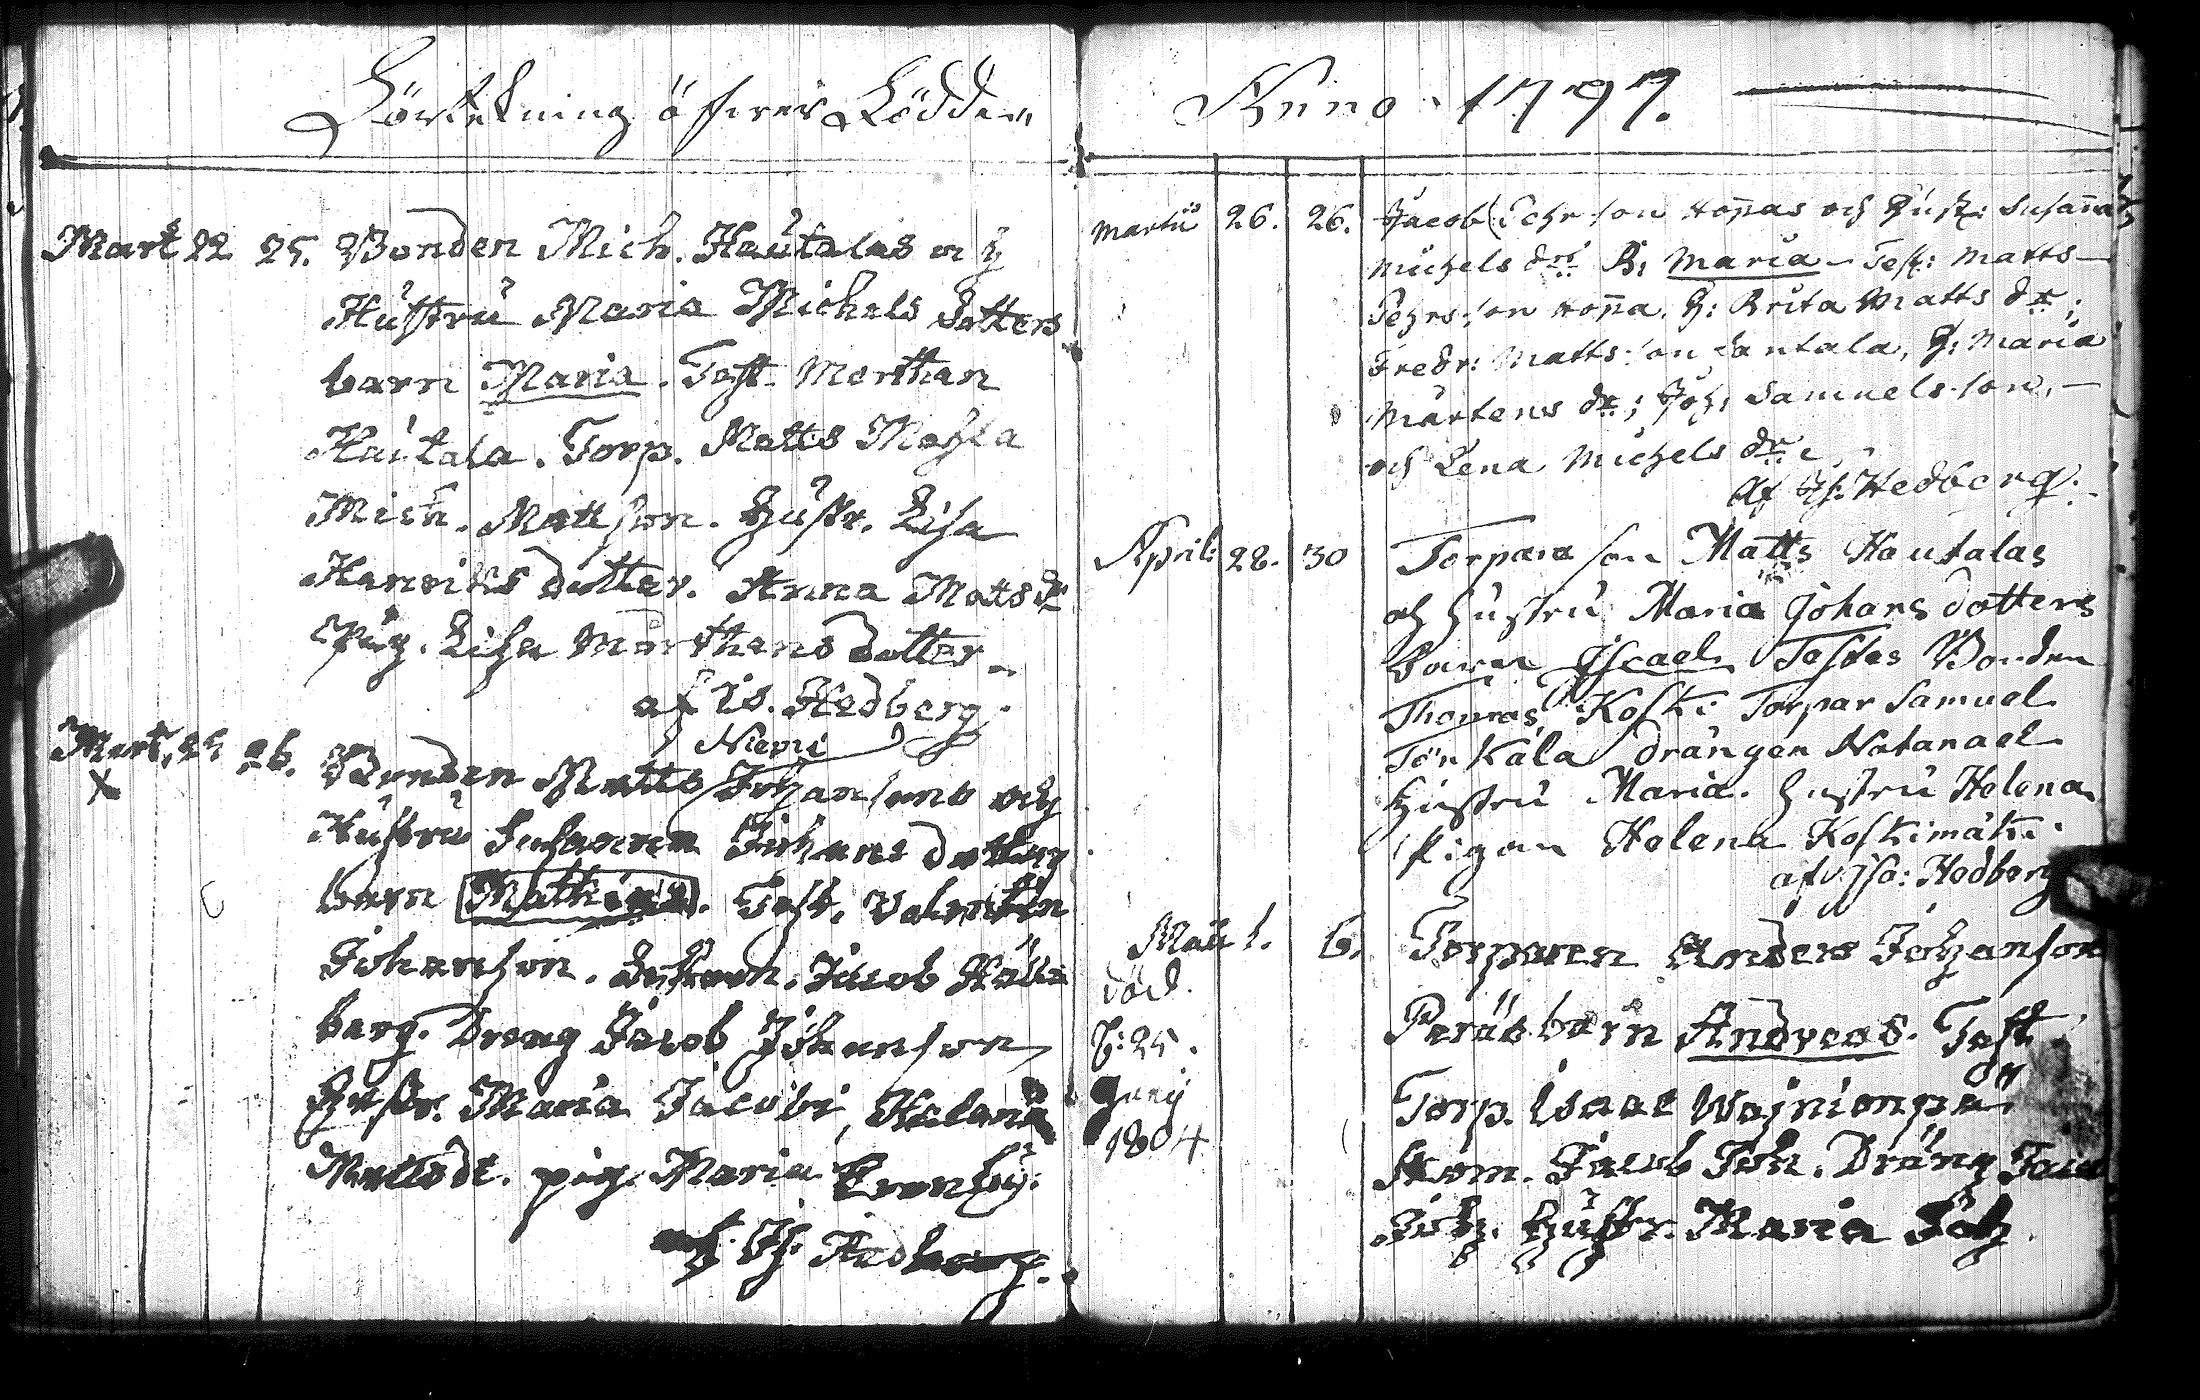 Förtekning öfwer Födde
Mart 22 25. Bonden Mich. Hautalas och
Hustru Maria Michels dotters
barn Maria. Test. Morthan
Hautala. Torp. Matts
Mich. Mattsson. Hustr. Lisa
Henriks dotter. Anna Matts dr
Pig. Lisa Morthans dotter
af Is. Hedberg.
Niemi
Mart. 25 26. Bonden Matts Johansons och
X
Hustru Susanna Johans dotters
barn Mathias. Test. Valentin
Johanson. Jacob
berg. Dreng Jacob Johanson
Hustr. Maria Jacobi, Helena
Mattsdt. pig. Maria
af Is. Hedberg.
Anno 1797.
Martii 26. 26. Jacob Pehr son Hoppas och Hust: Susanna
Michels dr: B: Maria Test: Matts
Pehrs son Hoppa, H: Brita Matts dr;
Fredr: Matts son Santala, H: Maria
Mårtens dr; Joh: Samuels son,
och Lena Michels dr:
af Is: Hedberg.
April 28. 30 Torpare son Matts Hautalas
och hustru Maria Johans dotters
barn Isracl Testes Bonden
Thomas Koski Torpar Samuel
Tönkälä drängen Natanael
hustru Maria. hustru Helena
pigan Helena Koskimäki
af Isa: Hedberg
Maii 1. 6. Torparen Anders Johanson
död.
Peräs barn Andreas. Test.
d: 25.
Junij
Torp. Isaac Wainionpää
1804
Jacob Joh. Dräng Jacob
Joh. Hustr. Maria Joh.